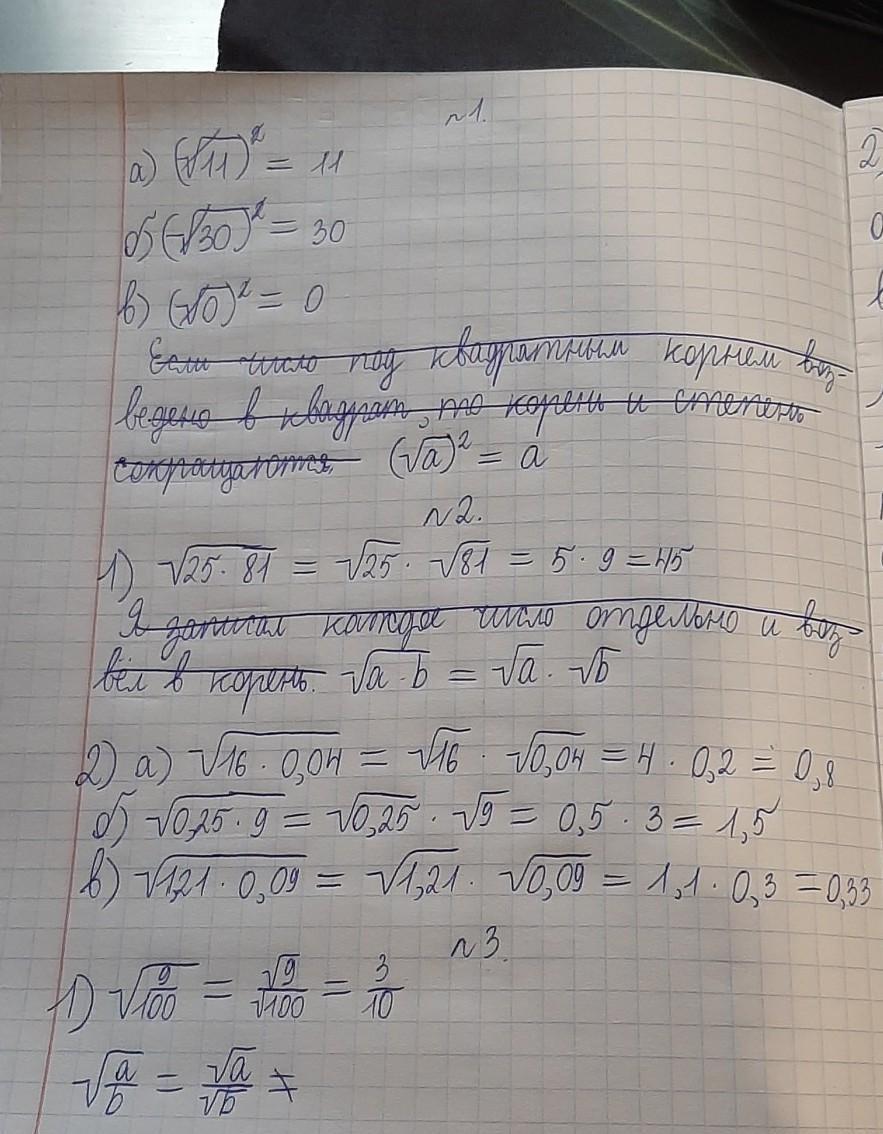 n1.
а) (√11)² = 11
б) (√30)² = 30
в) (√0)² = 0
Если число под квадратным корнем воз-
ведено в квадрат, то корень и степень
сокращаются. (√a)² = a
n2.
1) √25·81 = √25 · √81 = 5 · 9 = 45
Я записал каждое число отдельно и воз-
вёл в корень. √a·b = √a · √b
2) а) √16·0,04 = √16 · √0,04 = 4 · 0,2 = 0,8
б) √0,25·9 = √0,25 · √9 = 0,5 · 3 = 1,5
в) √1,21·0,09 = √1,21 · √0,09 = 1,1 · 0,3 = 0,33
n3.
1) √9/100 = √9/√100 = 3/10
√a/b = √a/√b =
2)